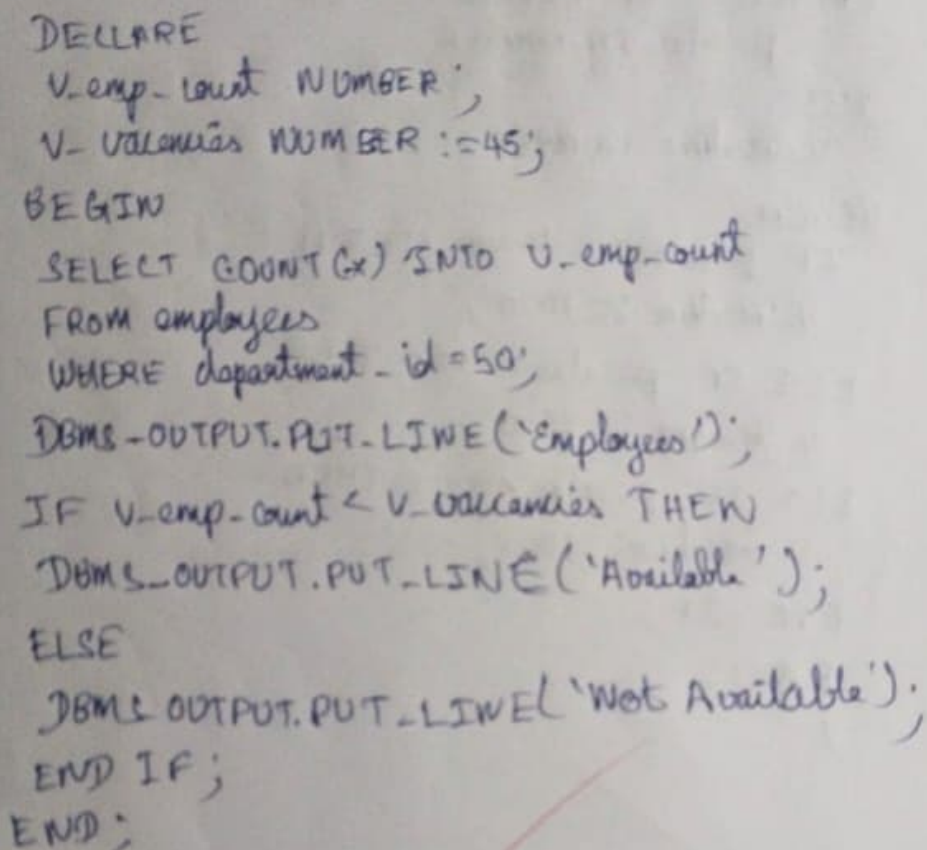 DECLARE
V_emp_count NUMBER;
V_vacancies NUMBER :=45;
BEGIN
SELECT COUNT(*) INTO V_emp_count
FROM employees
WHERE department_id = 50;
DBMS_OUTPUT.PUT_LINE('Employees');
IF V_emp_count < V_vaccancies THEN
DBMS_OUTPUT.PUT_LINE('Available');
ELSE
DBMS OUTPUT.PUT_LINE('Not Available');
END IF;
END;